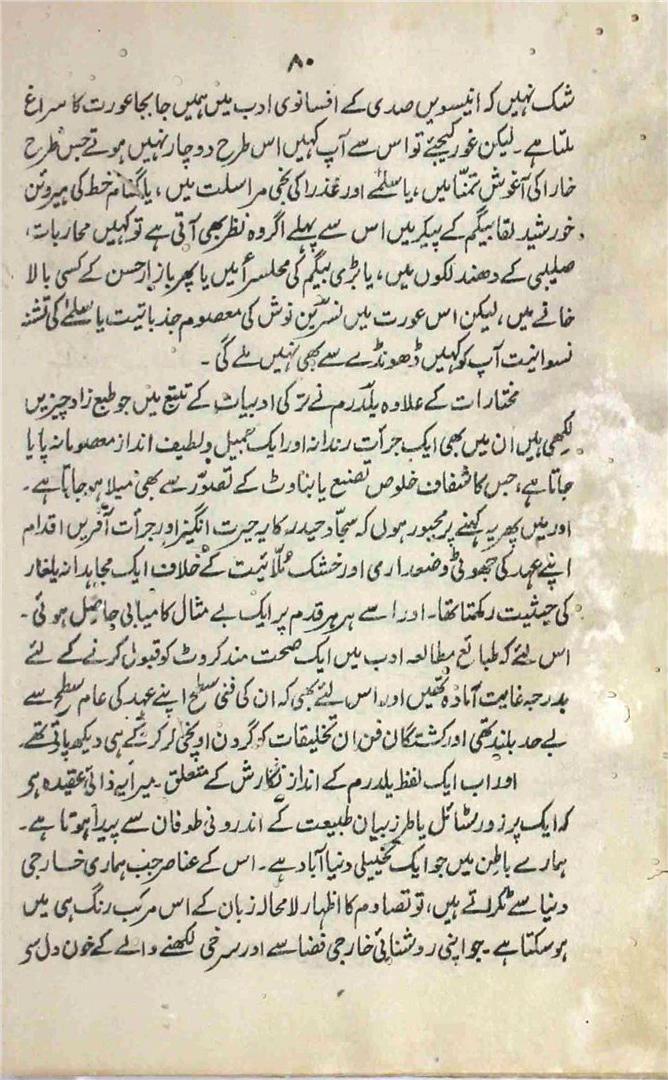 ۸۰
شک نہیں کہ انیسویں صدی کے افسانوی ادب میں ہمیں جا بجا عورت کا سراغ
ملتا ہے۔ لیکن غور کیجئے تو اس سے آپ کہیں اس طرح دوچار نہیں ہوتے جس طرح
خارا کی آغوشِ تمنّا میں، یا سلمےٰ اور عذرا کی نجی مراسلت میں، یا گمنام خط کی ہیروئن
خورشید لقا بیگم کے پیکر میں اس سے پہلے اگر وہ نظر بھی آتی ہے تو کہیں محاربات،
صلیبی کے دھندلکوں میں، یا بڑی بیگم کی محلسرا میں یا پھر بازارِ حسن کے کسی بالا
خانے میں، لیکن اس عورت میں نسرین نوش کی معصوم جذباتیت یا سلمےٰ کی تشنہ
نسوانیت آپ کو کہیں ڈھونڈے سے بھی نہیں ملے گی۔
مختارات کے علاوہ یلدرم نے ترکی ادبیات کے تتبع میں جو طبع زاد چیزیں
لکھی ہیں ان میں بھی ایک جرأت رندانہ اور ایک جمیل و لطیف انداز معصومانہ پایا
جاتا ہے، جس کا شفاف خلوص تصنع یا بناوٹ کے تصوّر سے بھی میلا ہو جاتا ہے۔
اور میں پھر یہ کہنے پر مجبور ہوں کہ سجاد حیدر کا یہ حیرت انگیز اور جرأت آفریں اقدام
اپنے عہد کی جھوٹی وضعداری اور خشک مُلّائیت کے خلاف ایک مجاہدانہ یلغار
کی حیثیت رکھتا تھا۔ اور اسے ہر ہر قدم پر ایک بے مثال کامیابی حاصل ہوئی۔
اس لئے کہ طبائع مطالعہ ادب میں ایک صحت مند کروٹ کو قبول کرنے کے لئے
بدرجہ غایت آمادہ تھیں اور اس لئے بھی کہ ان کی فنی سطح اپنے عہد کی عام سطح سے
بے حد بلند تھی اور کشتگان فن ان تخلیقات کو گردن اونچی کر کے ہی دیکھ پاتے تھے۔
اور اب ایک لفظ یلدرم کے انداز نگارش کے متعلق۔ میرا یہ ذاتی عقیدہ ہو
کہ ایک پرزور سٹائل یا طرز بیان طبیعت کے اندرونی طوفان سے پیدا ہوتا ہے۔
ہمارے باطن میں جو ایک تخییلی دنیا آباد ہے۔ اس کے عناصر جب ہماری خارجی
دنیا سے ٹکراتے ہیں، تو تصادم کا اظہار لامحالہ زبان کے اس مرکب رنگ ہی میں
ہو سکتا ہے۔ جو اپنی روشنائی خارجی فضا سے اور سرخی لکھنے والے کے خون دل سو